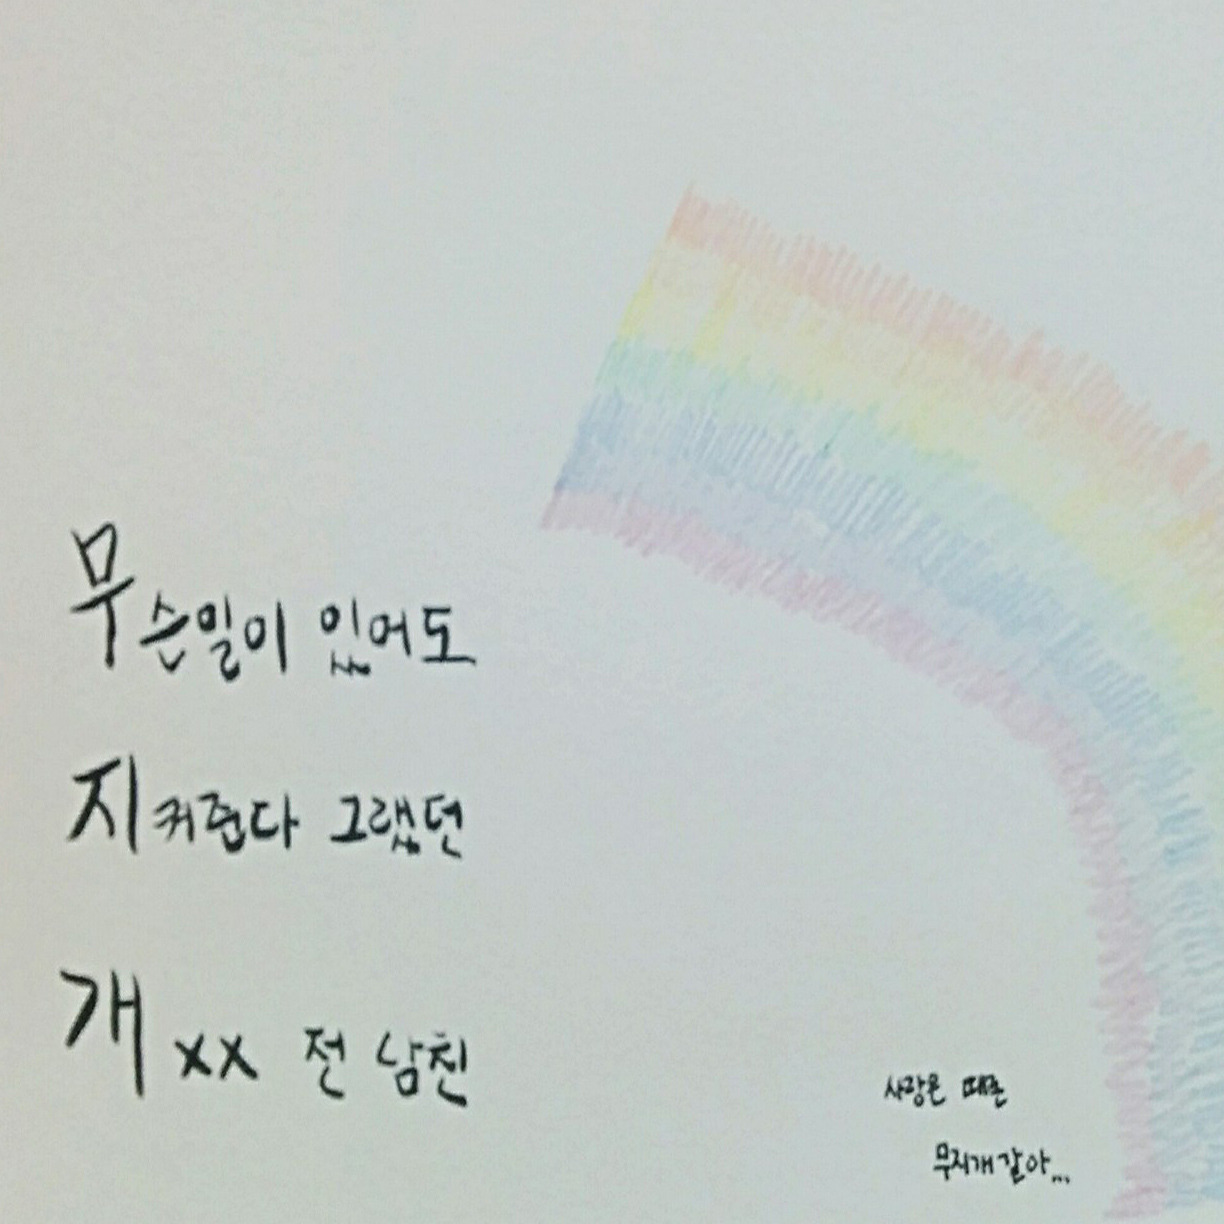 무슨일이 있어도
지켜준다 그랬던
개xx 전 남친
사랑은 때론
무지개 같아...